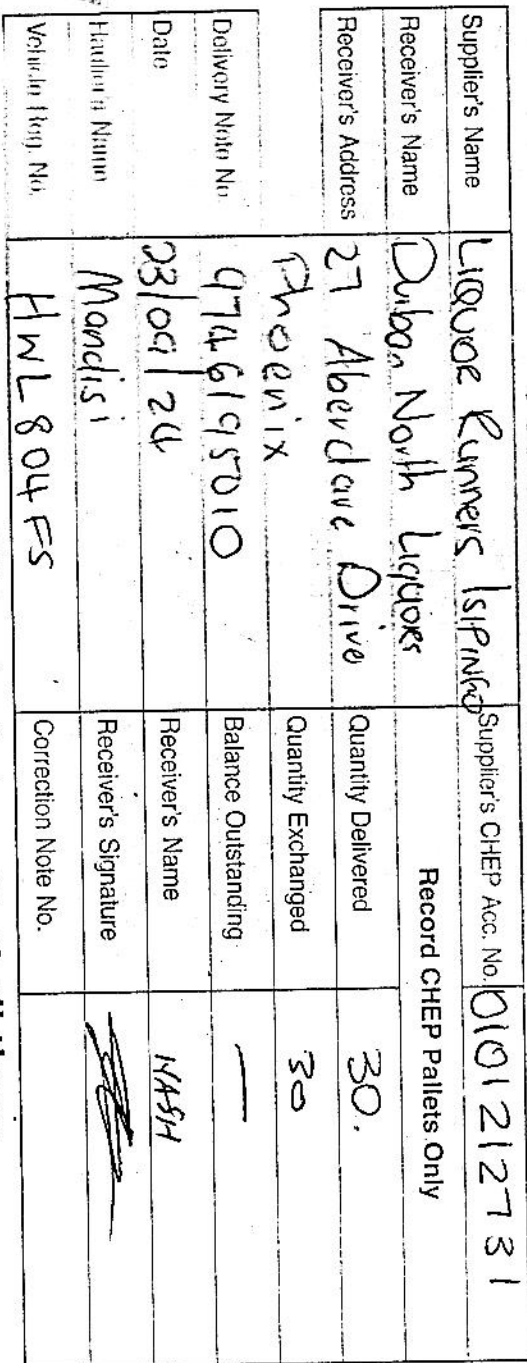 Supplier's Name Liquor Runners ISIPINGO Supplier's CHEP Acc. No. 0101212731
Receiver's Name Durban North Liquors Record CHEP Pallets Only
Receiver's Address 27 Aberdare Drive Quantity Delivered 30.
Phoenix Quantity Exchanged 30
Delivery Note No 9746195010 Balance Outstanding —
Date 23/09/24 Receiver's Name YASH
Haulier's Name Mandisi Receiver's Signature
Vehicle Reg. No. HWL 804 FS Correction Note No.